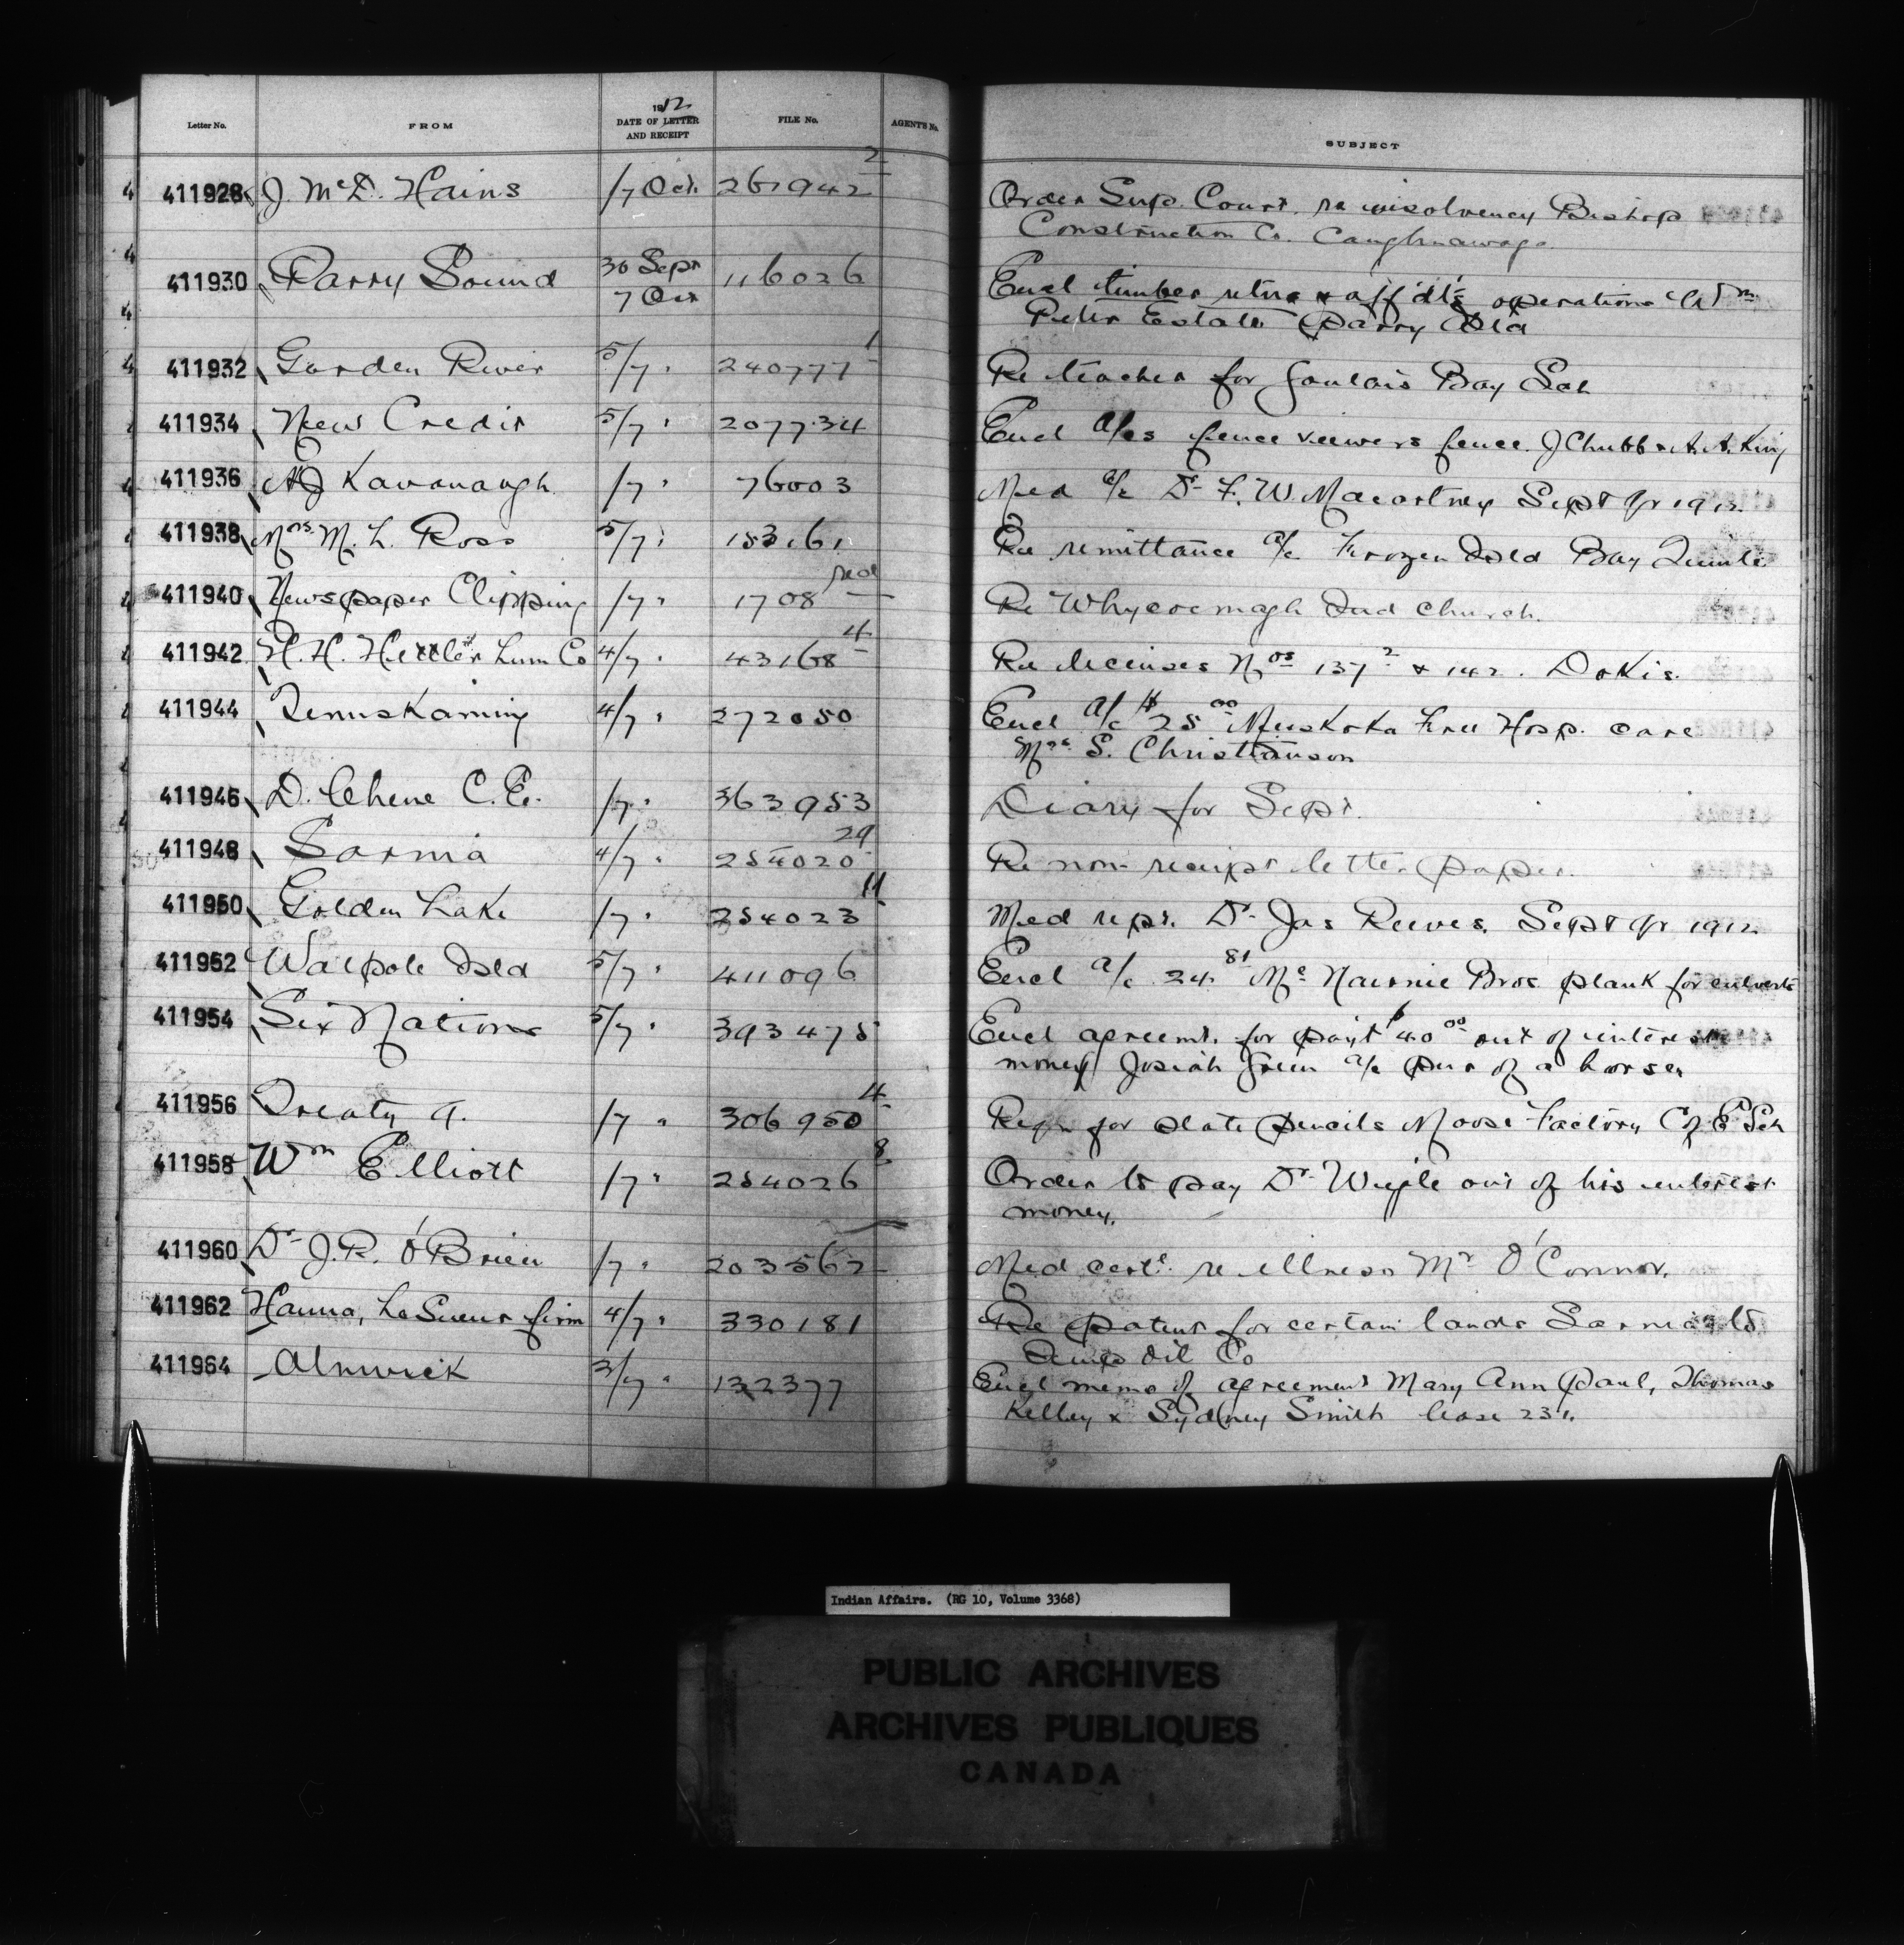 Letter No. FROM 1912 DATE OF LETTER AND RECEIPT FILE No. AGENT'S No. SUBJECT
411928 J. McD. Hains /7 Oct. 261942 2 Order Sup. Court. re insolvency Bishop
Construction Co. Caughnawaga
411930 Parry Sound 30 Sept 7 Oct 116026 Encl timber retns & affdts operations Wm
Peter Estate Parry Isld
411932 Garden River 5/7 " 240777 1 Re teacher for Goulais Bay Sch
411934 New Credit 5/7 " 207734 Encl a/cs fence viewers fence J Chubb & A. A. King
411936 AJ Kavanaugh /7 " 76003 Med a/c Dr F. W. Macartney Sept Qr 1912
411938 Mrs M. L. Ross 5/7 " 153161 Re remittance a/c Frozen Isld Bay Quinte
411940 Newspaper Clipping /7 " 1708 Re Whycocomagh Ind Church.
411942 H. H. Hettler Lum Co 4/7 " 43168 4 Re licenses Nos 137 2 & 142. Dokis.
411944 Temiskaming 4/7 " 272050 Encl a/c $25 00 Muskoka Free Hosp. care
Mrs S. Christianson
411946 D. Chene C.E. /7 " 363953 Diary for Sept.
411948 Sarnia 4/7 " 254020 29 Re non-receipt letter paper.
411950 Golden Lake /7 " 254023 11 Med rept. Dr Jas Reeves. Sept Qr 1912
411952 Walpole Isld 5/7 " 411096 Encl a/c 24. 81 Mc Nairnie Bros plank for culverts
411954 Six Nations 5/7 " 393475 Encl agreemt. for payt $40 00 out of interest
money Josiah Green a/c pur of a horse
411956 Treaty 9. /7 " 306950 4 Reqn for slate pencils Moose Factory C of E Sch
411958 Wm Elliott /7 " 254026 8 Order to pay Dr out of his interest
money.
411960 Dr J.R. O'Brien /7 " 203562 Med cert. re illness Mr O'Connor.
411962 Hanna, LeSueur firm 4/7 " 330181 Re patent for certain lands Sarnia to
Imp Oil Co
411964 Alnwick 3/7 " 132377 Encl memo of agreement Mary Ann Paul, Thomas
Kelley & Sydney Smith lease 231.
Indian Affairs. (RG 10, Volume 3368)
PUBLIC ARCHIVES
ARCHIVES PUBLIQUES
CANADA